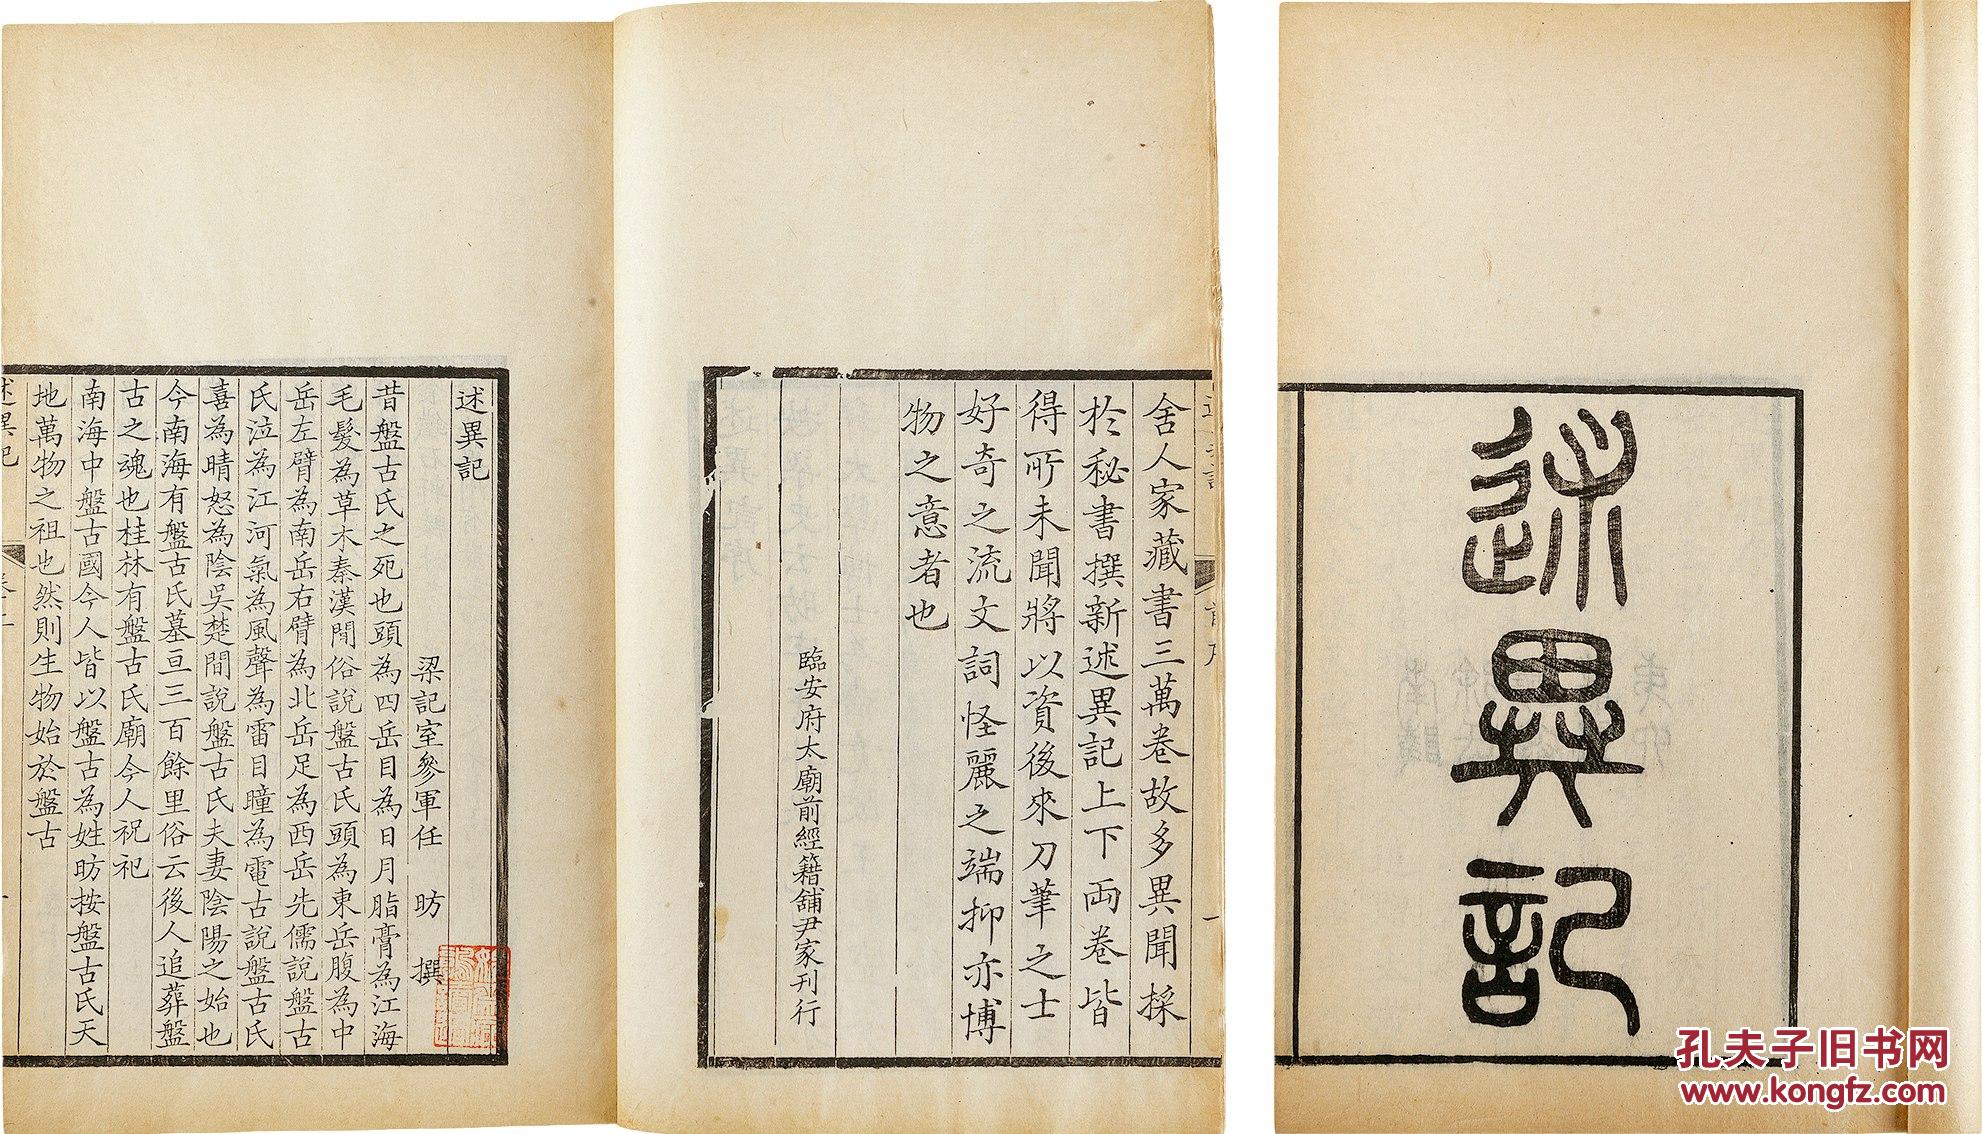 述異記
舍人家藏書三萬卷故多異聞採
於秘書撰新述異記上下兩卷皆
得所未聞將以資後來刀筆之士
好奇之流文詞怪麗之端抑亦博
物之意者也
臨安府太廟前經籍舖尹家刊行
述異記
梁記室參軍任昉撰
昔盤古氏之死也頭為四岳目為日月脂膏為江海
毛髮為草木秦漢間俗說盤古氏頭為東岳腹為中
岳左臂為南岳右臂為北岳足為西岳先儒說盤古
氏泣為江河氣為風聲為雷目瞳為電古說盤古氏
喜為晴怒為陰吳楚間說盤古氏夫妻陰陽之始也
今南海有盤古氏墓亘三百餘里俗云後人追葬盤
古之魂也桂林有盤古氏廟今人祝祀
南海中盤古國今人皆以盤古為姓昉按盤古氏天
地萬物之祖也然則生物始於盤古
述異記
孔夫子旧书网
www.kongfz.com